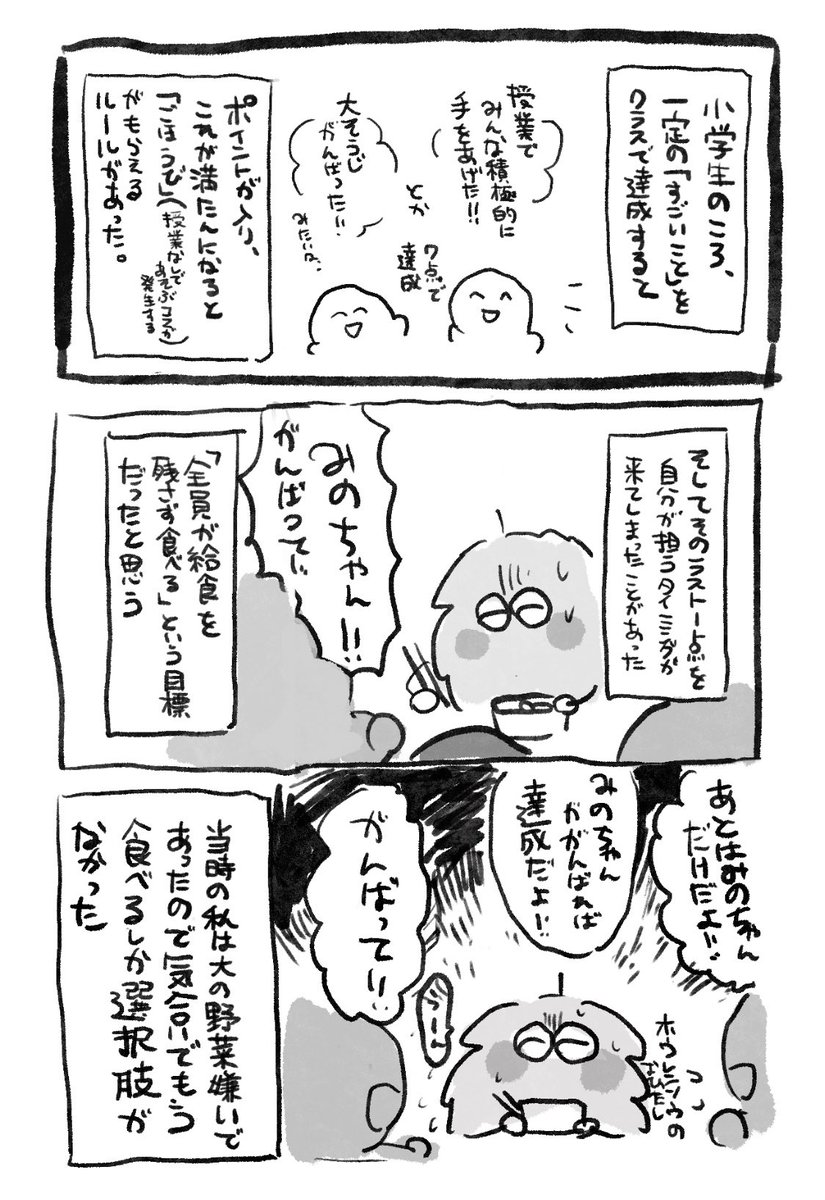 小学生のころ、
一定の「すごいこと」を
クラスで達成すると
授業で
みんな積極的に
手をあげた!!
とか
大そうじ
がんばった!!
みたいな、
7点で
達成
ポイントが入り、
これが満たんになると
「ごほうび」(授業なしで
あそぶコマが
発生する)
がもらえる
ルールがあった。
そしてそのラスト一点を
自分が担うタイミングが
来てしまったことがあった
みのちゃん!!
がんばって!!
「全員が給食を
残さず食べる」という目標
だったと思う
あとはみのちゃん
だけだよ!!
みのちゃん
ががんばれば
達成だよ!!
がんばって!!
うーん
ホウレンソウの
おひたし
当時の私は大の野菜嫌いで
あったので気合いでもう
食べるしか選択肢が
なかった